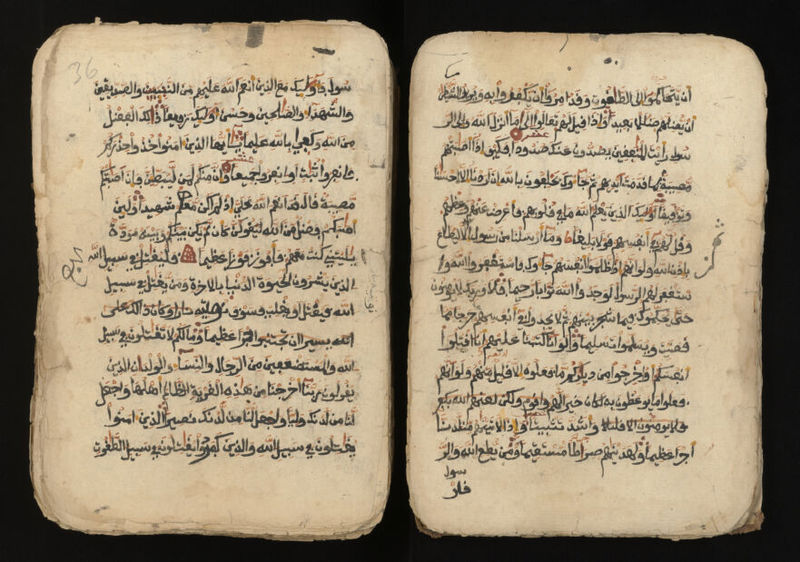 ان يتحاكموا الى الطغوت وقد امروا ان يكفروا به ويريد الشيطن
ان يضلهم ضللا بعيدا واذا قيل لهم تعالوا الى ما انزل الله والى الر
سول رايت المنفقين يصدون عنك صدودا فكيف اذا اصبتهم
مصيبة بما قدمت ايديهم ثم جاءوك يحلفون بالله ان اردنا الا احسنا
وتوفيقا اوليك الذين يعلم الله ما في قلوبهم فاعرض عنهم وعظهم
وقل لهم في انفسهم قولا بليغا وما ارسلنا من رسول الا ليطاع
باذن الله ولو انهم اذ ظلموا انفسهم جاوك فاستغفروا الله وا
ستغفر لهم الرسول لوجدوا الله توابا رحيما فلا وربك لا يومنون
حتى يحكموك فيما شجر بينهم ثم لا يجدوا في انفسهم حرجا مما
قضيت ويسلموا تسليما ولو انا كتبنا عليهم ان اقتلوا
انفسكم او اخرجوا من دياركم ما فعلوه الا قليل منهم ولو انهم
فعلوا ما يوعظون به لكان خيرا لهم واقوم ولكن لعنهم الله بكفر
فلا يومنون الا قليلا واشد تثبيتا واذا لاتينهم من لدنا
اجرا عظيما ولهدينهم صراطا مستقيما ومن يطع الله والر
سول
36
سول فاوليك مع الذين انعم الله عليهم من النبيين والصديقين
والشهداء والصلحين وحسن اوليك رفيقا ذلك الفضل
من الله وكفى بالله عليما يايها الذين امنوا خذوا حذركم
فانفروا ثبات او انفروا جميعا وان منكم لمن ليبطين فان اصبتكم
مصيبة قال قد انعم الله علي اذ لم اكن معهم شهيدا ولين
اصبكم فضل من الله ليقولن كان لم تكن بينكم وبينه مودة
يليتني كنت معهم فافوز فوزا عظيما فليقتل في سبيل الله
الذين يشرون الحيوة الدنيا بالاخرة ومن يقتل في سبيل
الله فيقتل او يغلب فسوف
الله
الله والمستضعفين من الرجال والنساء والولدان الذين
يقولون ربنا اخرجنا من هذه القرية الظالم اهلها واجعل
لنا من لدنك وليا واجعل لنا من لدنك نصيرا الذين امنوا
يقتلون في سبيل الله والذين كفروا يقتلون في سبيل الطغوت